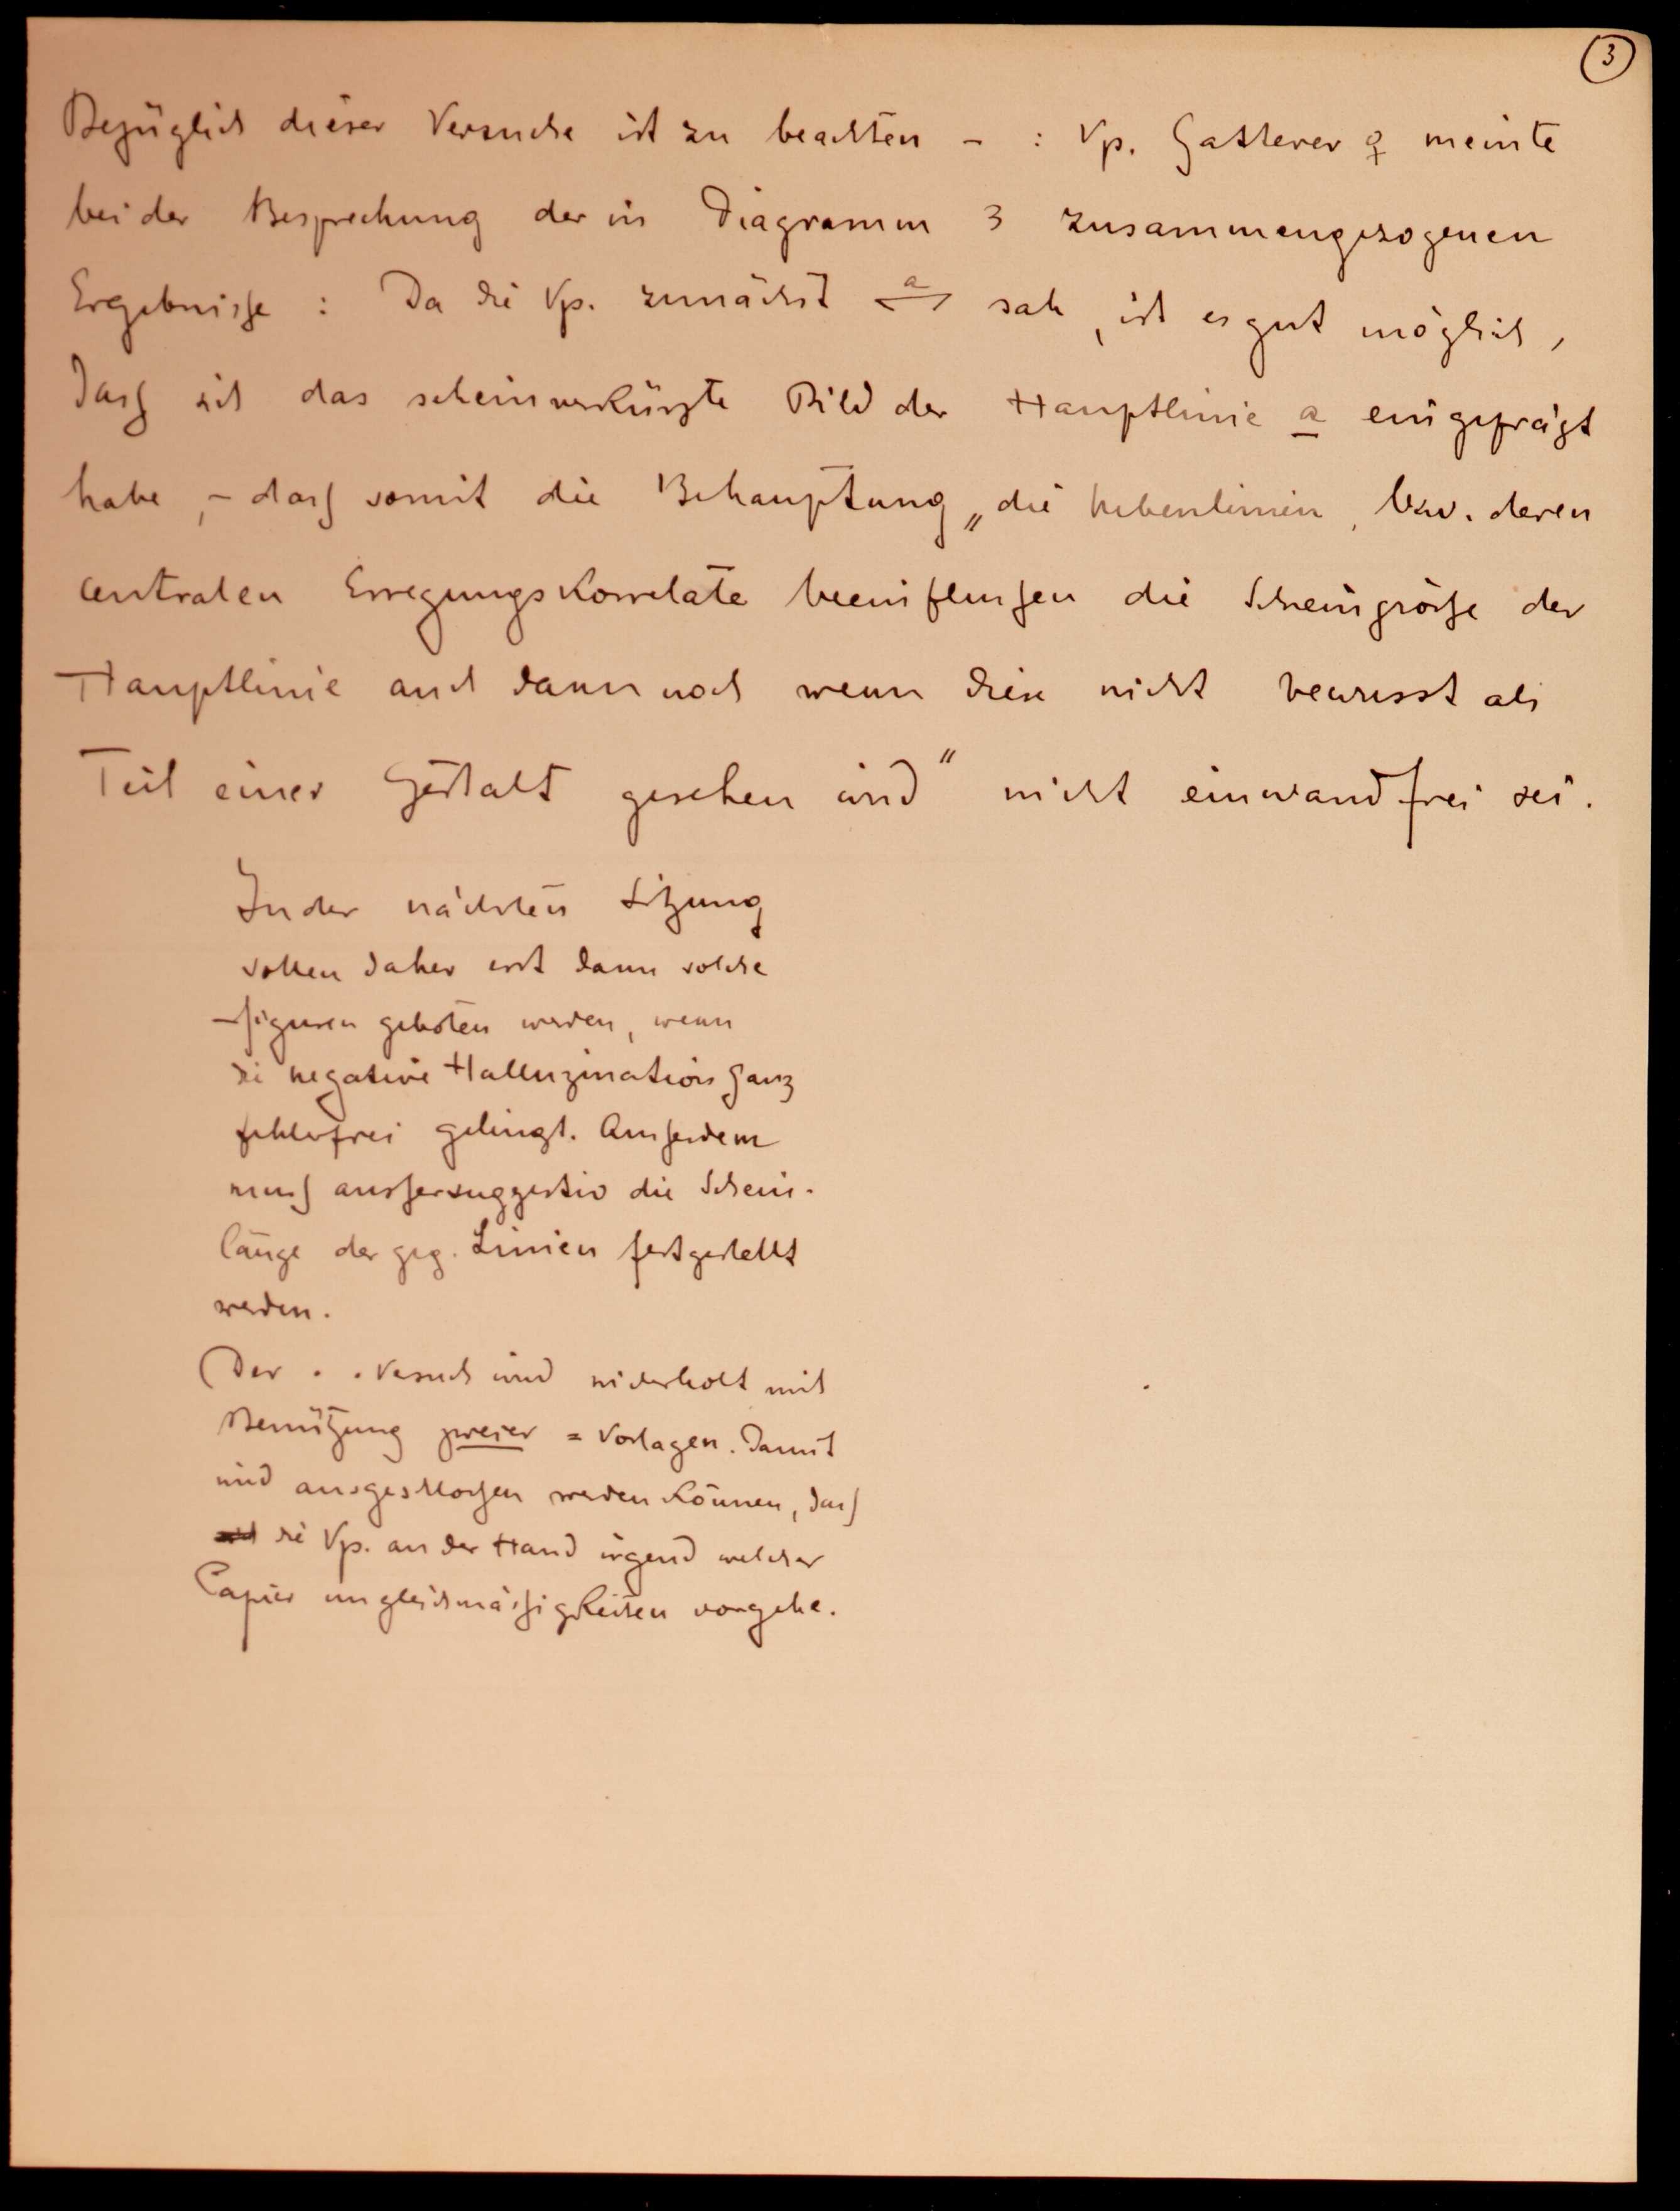 3
Bezüglich dieser Versuche ist zu beachten - : Vp. Gatterer ♀ meinte
bei der Besprechung der in Diagramm 3 zusammengezogenen
Ergebnisse : Da die Vp. zunächst a sah, ist es gut möglich,
dass sich das scheinverkürzte Bild der Hauptlinie a eingeprägt
habe, - dass somit die Behauptung „die Nebenlinien, bzw. deren
centralen Erregungskorrelate beeinflussen die Scheingrösse der
Hauptlinie auch dann noch wenn diese nicht bewusst als
Teil einer Gestalt gesehen wird" nicht einwandfrei sei.
In der nächsten Sitzung
sollen daher erst dann solche
Figuren geboten werden, wenn
die negative Halluzination ganz
fehlerfrei gelingt. Ausserdem
muss aussersuggestiv die Schein-
länge der geg. Linien festgestellt
werden.
(Der . . Versuch wird wiederholt mit
Benützung zweier = Vorlagen. Damit
wird ausgeschlossen werden können, dass
die Vp. an der Hand irgend welcher
Papier ungleichmässigkeiten vorgehe.